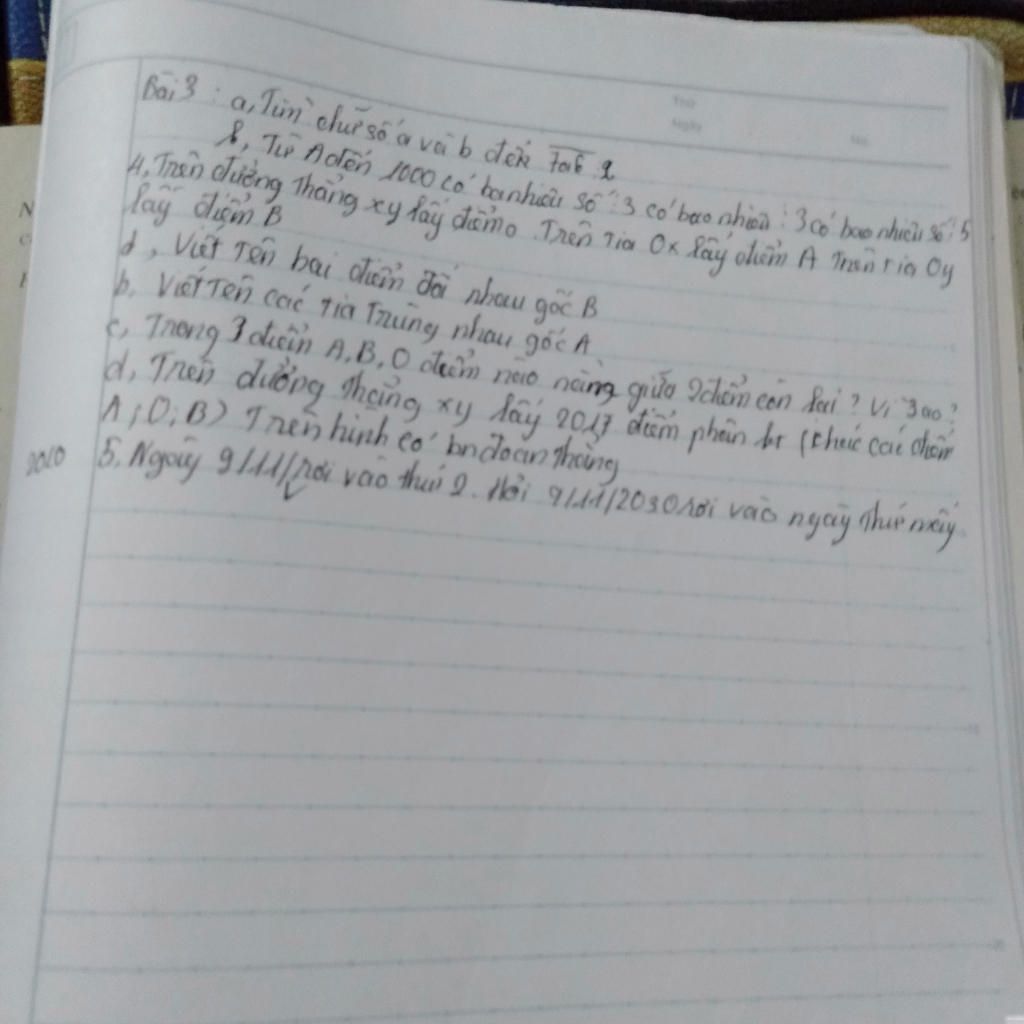 Bài 3 : a, Tìm chữ số a và b để 7a6
b, Từ 1 đến 1000 có bao nhiêu số : 3 có bao nhiêu : 3 có bao nhiêu số : 5
4, Trên đường thẳng xy lấy điểm O. Trên tia Ox lấy điểm A Trên tia Oy
lấy điểm B
d, Viết tên hai điểm đối nhau gốc B
b. Viết tên các tia Trùng nhau gốc A
c, Trong 3 điểm A, B, O điểm nào nằng giữa 2 điểm còn lại ? Vì sao ?
d, Trên đường thẳng xy lấy 2017 điểm phân bt (khác các điểm
A ; O ; B) Trên hình có bn đoạn thẳng
2010
5. Ngày 9/11/ rơi vào thứ 2. Hỏi 9/11/2030 rơi vào ngày thứ mấy
Thứ
Ngày
No